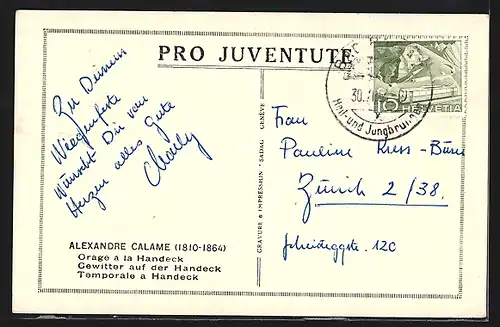 PRO JUVENTUTE
Zu Deinem
Wiegenfeste
wünscht Dir von
Herzen alles Gute
Charly
ALEXANDRE CALAME (1810-1864)
Orage à la Handeck
Gewitter auf der Handeck
Temporale a Handeck
GRAVURE & IMPRESSION · SADAG GENÈVE
30.
Heil-und Jungbrunnen
10 HELVETIA
Frau
Pauline Kress-
Zürich 2/38.
Scheideggstr. 12C